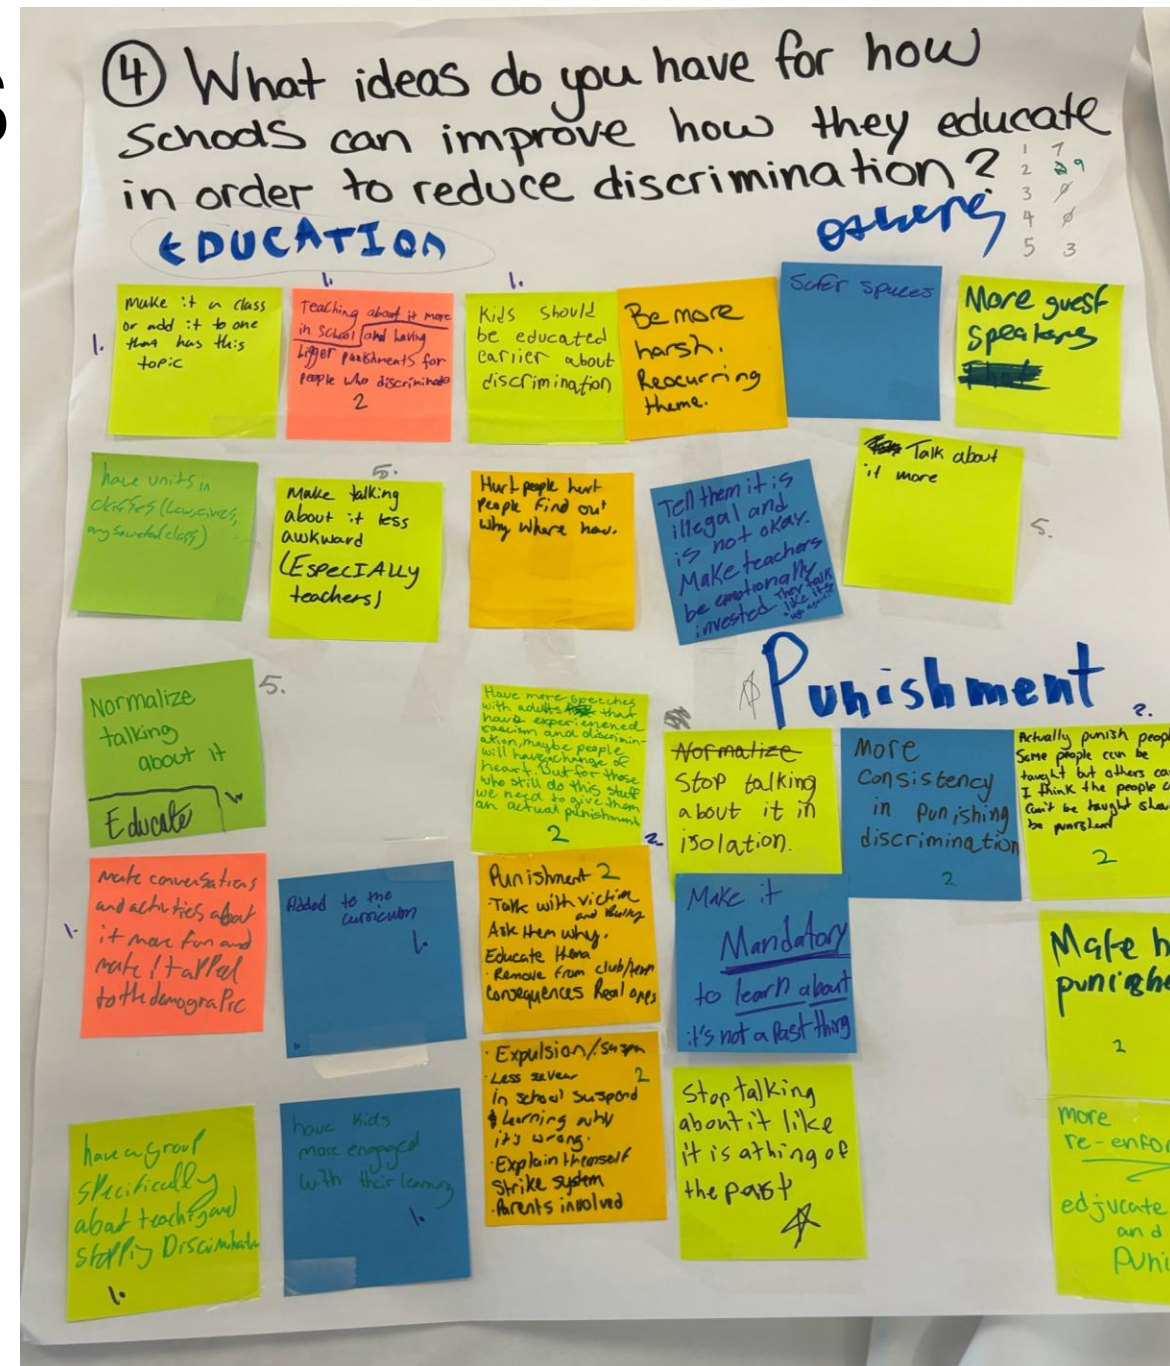 ④ What ideas do you have for how
schools can improve how they educate
in order to reduce discrimination?
1 7
2 9
3 ø
4 ø
5 3
EDUCATION
others
1.
make it a class
or add it to one
that has this
topic
1.
Teaching about it more
in school and having
bigger punishments for
people who discriminate
2
1.
Kids should
be educated
earlier about
discrimination
Be more
harsh.
Reocurring
theme.
Safer spaces
More guest
speakers
have units in
classes (Law, civics,
any societal class)
5.
Make talking
about it less
awkward
(ESPECIALLY
teachers)
Hurt people hurt
people find out
why where how.
Tell them it is
illegal and
is not okay.
Make teachers
be emotionally
invested They talk
like it's
Talk about
it more
5.
Normalize
talking
about it
5.
Educate
Have more speeches
with adults that
have experienced
racism and discrimin-
ation, maybe people
will have change of
heart. But for those
who still do this stuff
we need to give them
an actual punishment
2
Punishment
Normalize
Stop talking
about it in
isolation.
More
consistency
in punishing
discrimination
2
2.
Actually punish peop
Some people can be
taught but others ca
I think the people
can't be taught shou
be punished
2
1.
make conversations
and activities about
it more fun and
make it appeal
to the demographic
Added to the
curriculum
1.
2.
Punishment 2
Talk with victim
and bully
Ask them why.
Educate them
· Remove from club/team
Consequences Real ones
Make it
Mandatory
to learn about
it's not a past thing
Make h
punishe
2
have a group
specifically
about teaching and
stopping Discrimination
1.
have kids
more engaged
with their learning
1.
· Expulsion/suspen
· Less sever 2
in school suspend
& Learning why
it's wrong.
· Explain themself
Strike system
· Parents involved
Stop talking
about it like
it is a thing of
the past
more
re-enfor
edjucate
and
Puni